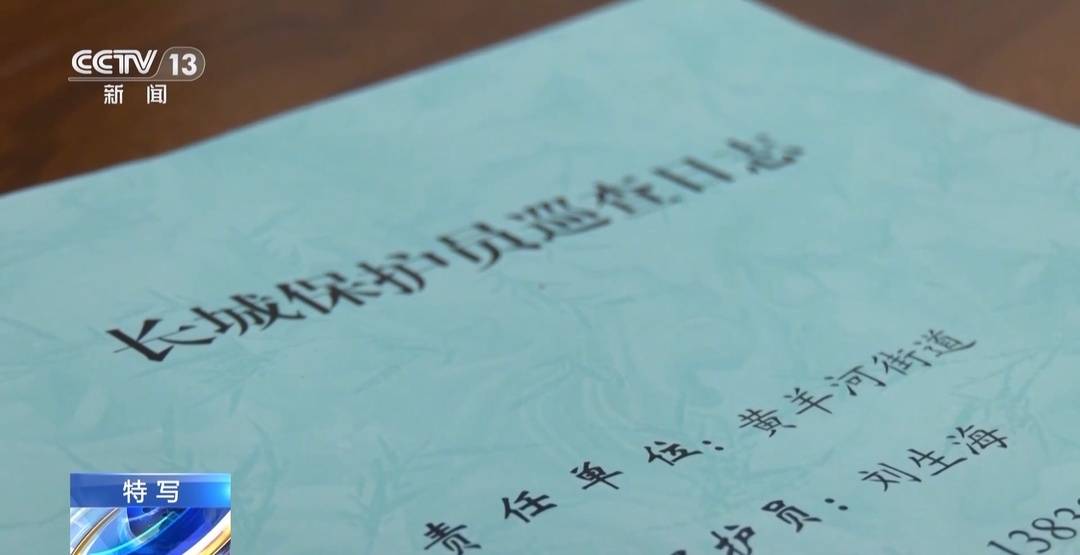 CCTV 13
新闻
长城保护员巡查日志
责任单位：黄羊河街道
护员：刘生海
1383
特写